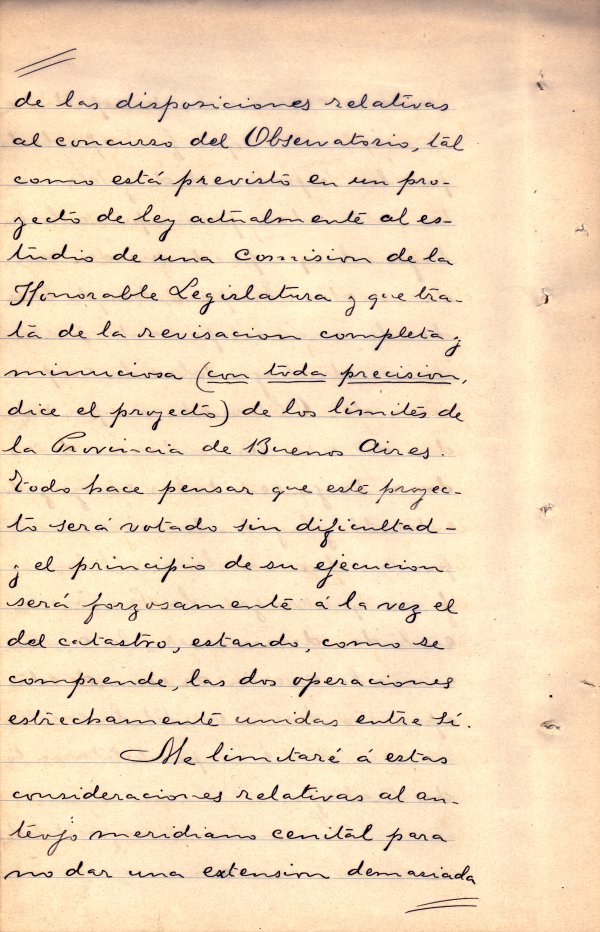 de las disposiciones relativas
al concurso del Observatorio, tal
como está previsto en un pro-
yecto de ley actualmente al es-
tudio de una Comision de la
Honorable Legislatura y que tra-
ta de la revisacion completa y
minuciosa (con toda precision,
dice el proyecto) de los límites de
la Provincia de Buenos Aires.
Todo hace pensar que este proyec-
to será votado sin dificultad-
y el principio de su ejecucion
será forzosamente á la vez el
del catastro, estando, como se
comprende, las dos operaciones
estrechamente unidas entre sí.
Me limitaré á estas
consideraciones relativas al an-
teojo meridiano cenital para
no dar una extension demasiada